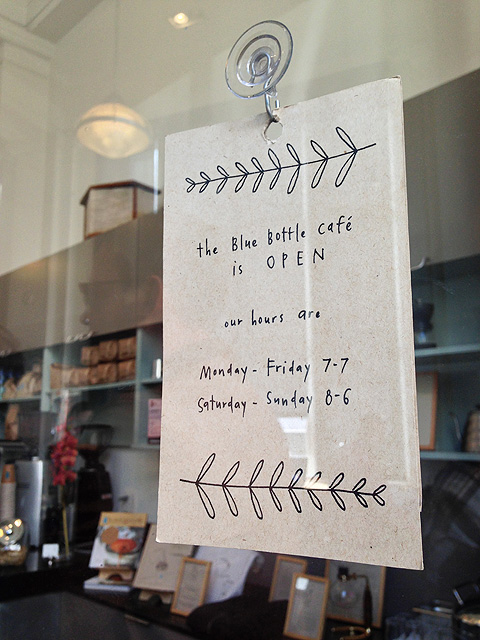 the Blue Bottle Café
is OPEN
our hours are
Monday - Friday 7-7
Saturday - Sunday 8-6